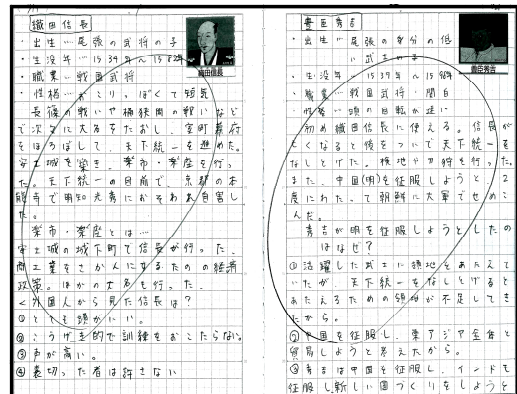 織田信長
・出生…尾張の武将の子
・生没年…1534年～1582年
・職業…戦国武将
織田信長
・性格…おこりっぽくて短気
長篠の戦いや桶狭間の戦いなど
で次々に大名をたおし、室町幕府
をほろぼして、天下統一を進めた。
安土城を築き、楽市・楽座を行っ
た。天下統一の目前で、京都の本
能寺で明知光秀におそわれ自害し
た。
楽市・楽座とは…
安土城の城下町で信長が行った、
商工業をさかんにするための経済
政策。ほかの大名も行った。
＜外国人から見た信長は？
①とても頭がいい。
②こうげき的で訓練をおこたらない。
③声が高い。
④裏切った者は許さない
豊臣秀吉
・出生…尾張の身分の低
い武士の子
豊臣秀吉
・生没年…1537年～1598年
・職業…戦国武将・関白
・性格…頭の回転が速い
初め織田信長に使える。信長が
亡くなると後をついで天下統一を
なしとげた。検地や刀狩を行った。
また、中国(明)を征服しようと、2
度にわたって朝鮮に大軍でせめこ
んだ。
秀吉が明を征服しようとしたの
はなぜ？
①活躍した武士に領地をあたえて
いたが、天下統一をなしとげると
あたえるための領地が不足してき
たから。
②中国を征服し、東アジア全体と
貿易しようと考えたから。
③秀吉は中国を征服し、インドも
征服し新しい国づくりをしようと